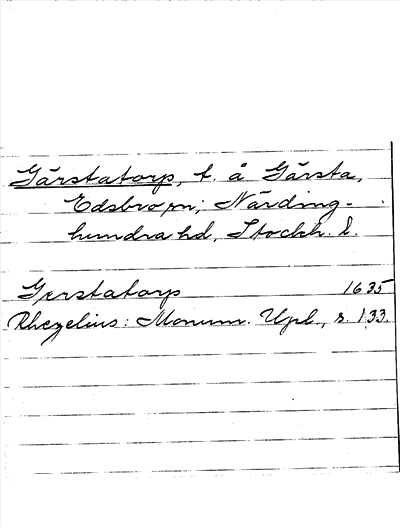 Gärstatorp, t. å Gärsta,
Edsbro sn; Närding-
hundra hd, Stockh. l.
Gerstatorp 1635
Rhezelius: Monum. Upl., s. 133.